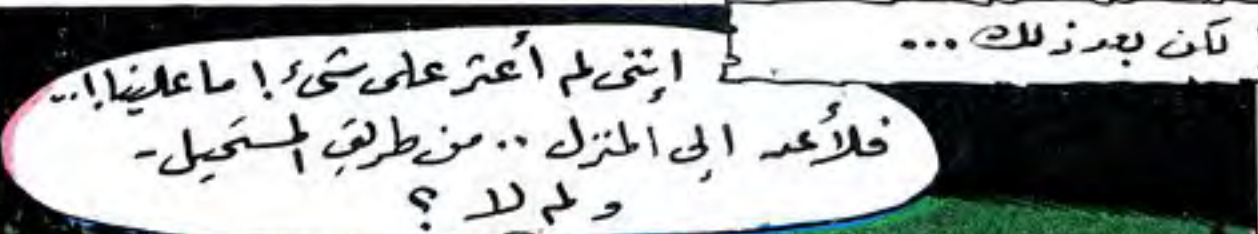 لكن بعد ذلك...
إنني لم أعثر على شيء! ما علينا!..
فلأعد إلى المنزل .. من طريق المستحيل -
و لم لا ؟